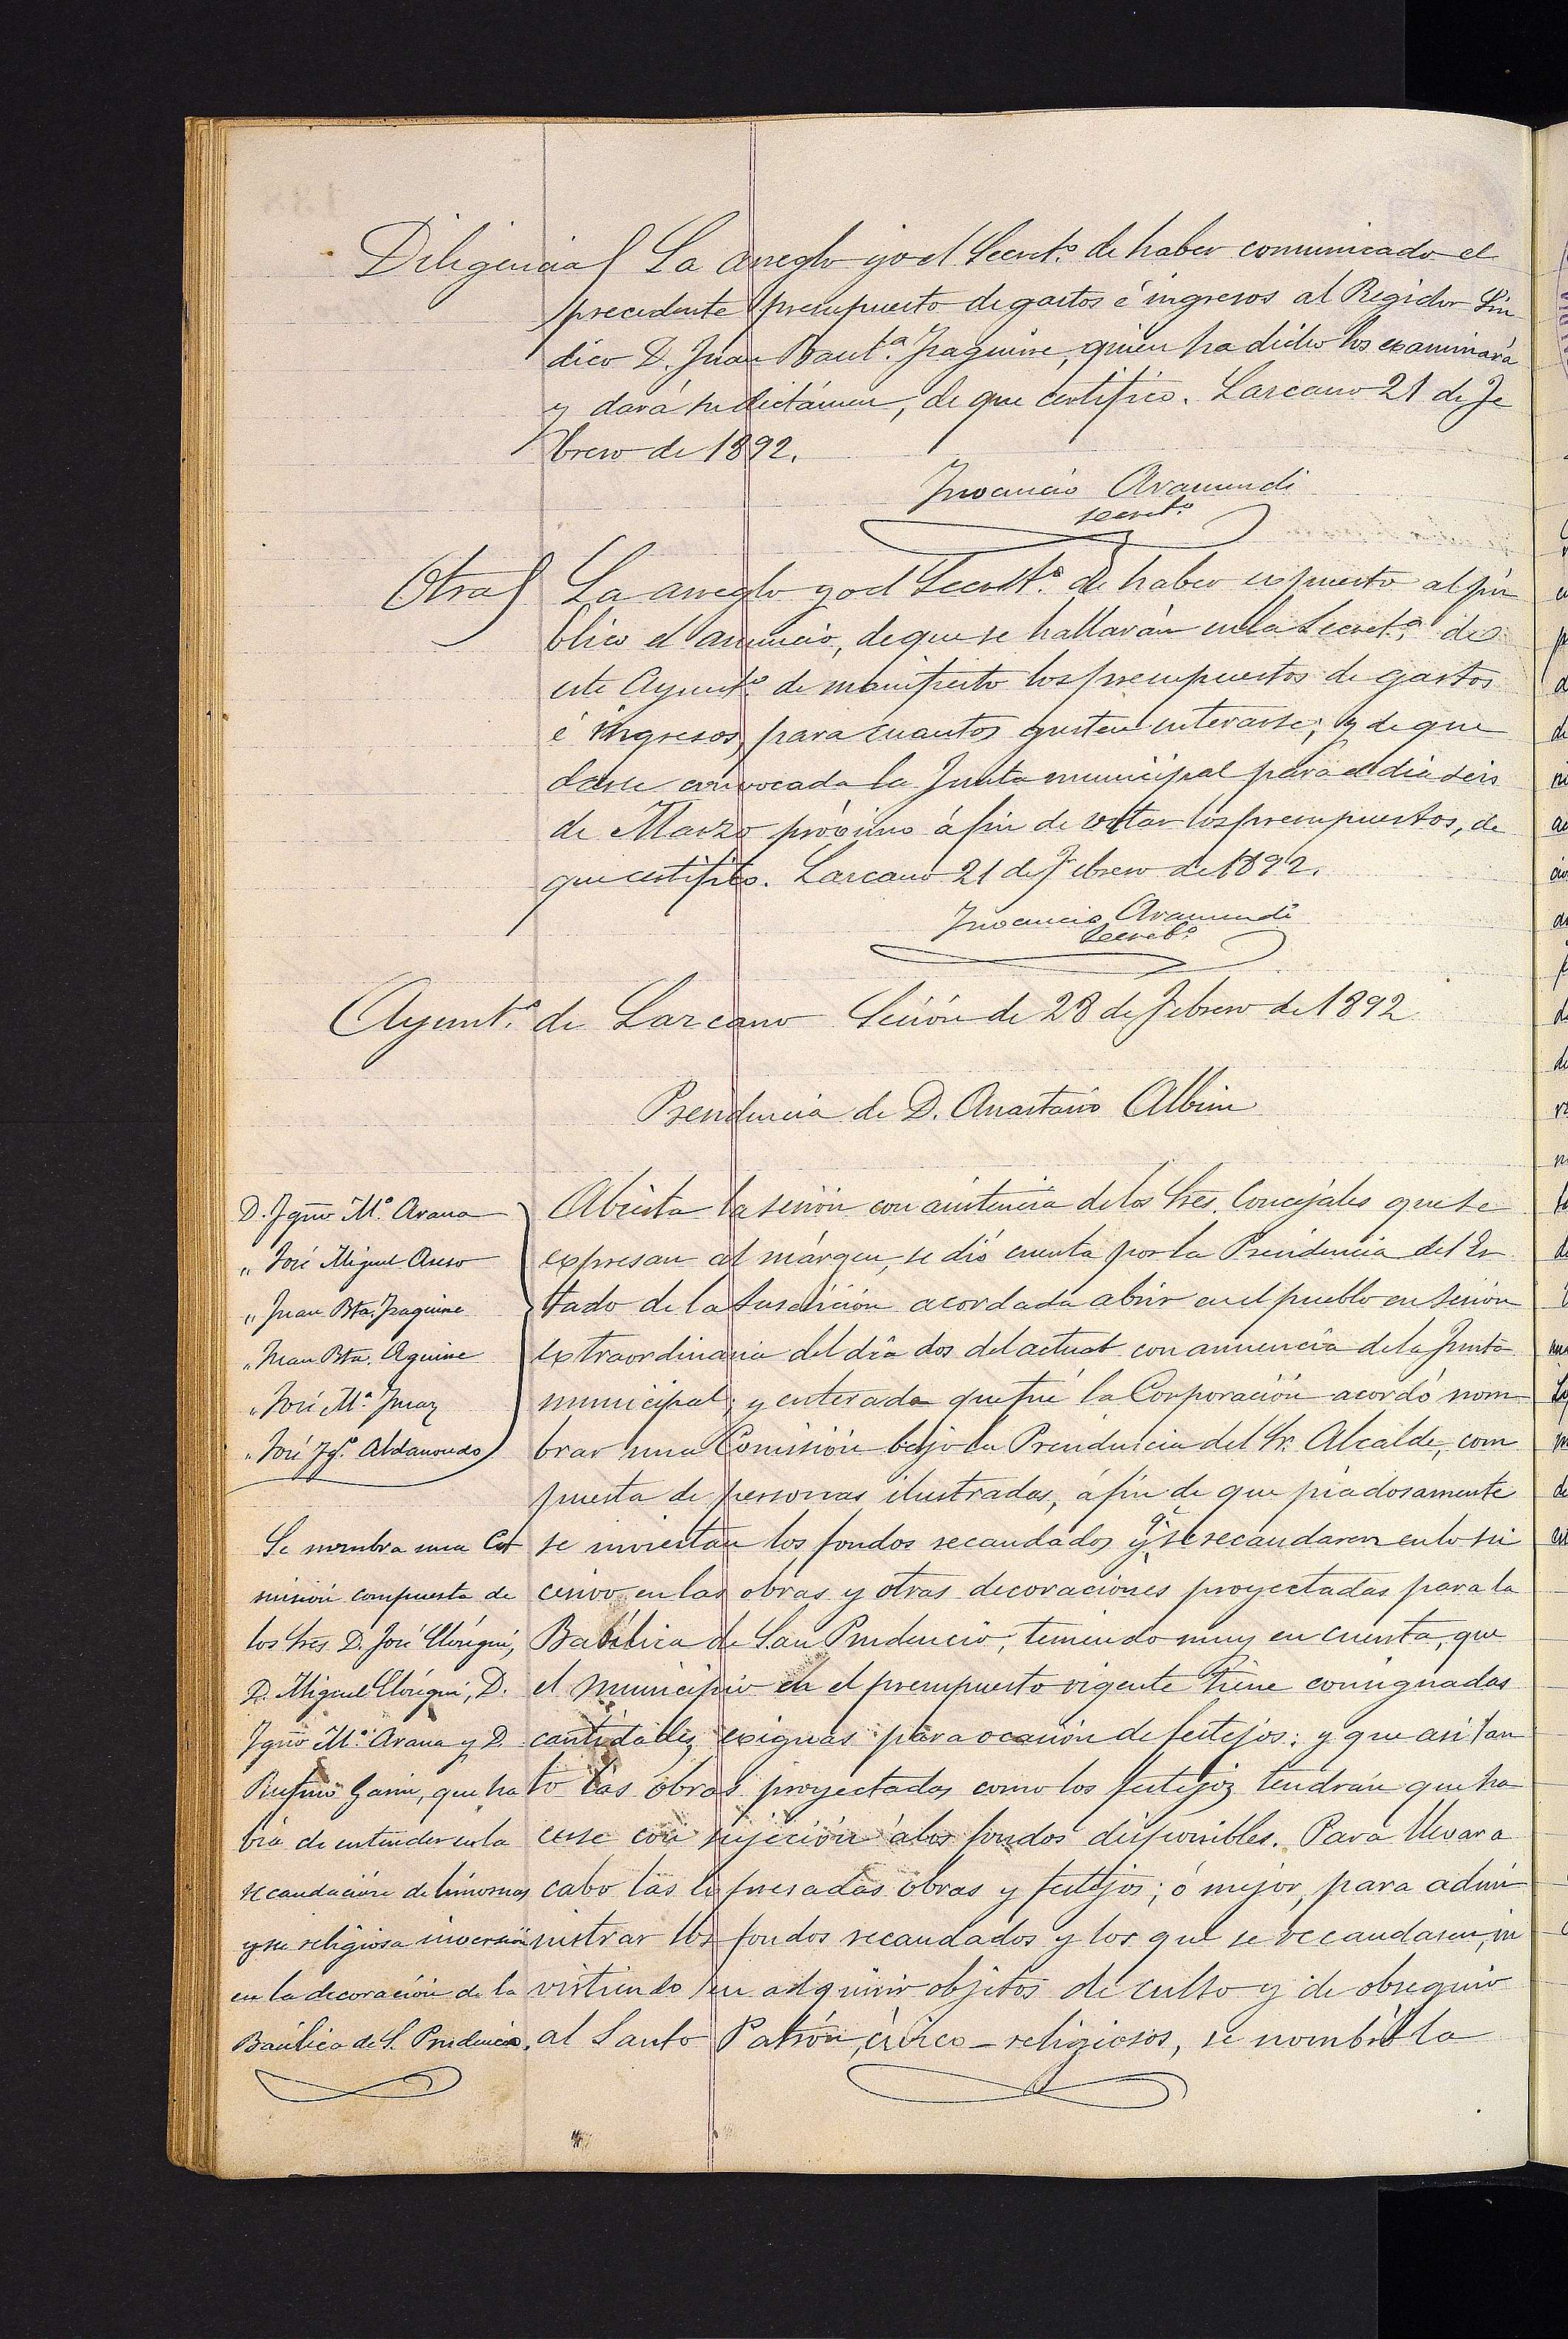 Diligencia} La arreglo yo el Secret.º de haber comunicado el
precedente presupuesto de gastos é ingresos al Regidor Sin
dico D. Juan Baut.ª Izaguirre, quien ha dicho los examinará
y dará su dictámen, de que certifico. Lazcano 21 de Fe
brero de 1892.
Inocencio Aramendi
Secret.º
Otra} La arreglo yo el Secret.º de haber expuesto al pú
blico el anuncio, de que se hallarán en la Secret.ª de
este Ayunt.º de manifiesto los presupuestos de gastos
é ingresos, para cuantos gusten enterarse; y de que
darse convocada la Junta municipal para el dia seis
de Marzo próximo á fin de votar los presupuestos, de
que certifico. Lazcano 21 de Febrero de 1892.
Inocencio Aramendi
Secret.º
Ayunt.º de Lazcano Sesión de 28 de Febrero de 1892
Presidencia de D. Anastasio Albisu
D. Ign.º M.ª Arana
" José Miguel Aseso
" Juan Bta. Izaguirre
" Juan Bta. Aguirre
" José M.ª
" José Ig.º Aldanondo
Se nombra una Co
misión compuesta de
los Sres. D. José Elósegui,
D. Miguel Elósegui, D.
Ign.º M.ª Arana y D.
Rufino Garin, que ha
bia de entender en la
recaudación de limosnas
y su religiosa inversión
en la decoración de la
Basílica de S. Prudencio.
Abierta la sesión con asistencia de los Sres. Concejales que se
expresan al márgen, se dió cuenta por la Presidencia del Es
tado de la suscrición acordada abrir en el pueblo en sesión
extraordinaria del dia dos del actual con anuencia de la Junta
municipal; y enterada que fué la Corporación acordó nom
brar una Comisión bajo la Presidencia del Sr. Alcalde, com
puesta de personas ilustradas, á fin de que piadosamente
se inviertan los fondos recaudados y q.e se recaudaren en lo su
cesivo en las obras y otras decoraciones proyectadas para la
Basílica de San Prudencio; teniendo muy en cuenta, que
el Municipio en el presupuesto vigente tiene consignadas
cantidades exiguas para ocasión de festejos: y que asi tan
to las obras proyectadas como los festejos tendrán que ha
cerse con sujeción á los fondos disponibles. Para llevar a
cabo las expresadas obras y festejos; ó mejor, para admi
nistrar los fondos recaudados y los que se recaudasen, in
virtiendo en adquirir objetos de culto y de obsequio
al Santo Patrón, cívico-religiosos, se nombró la